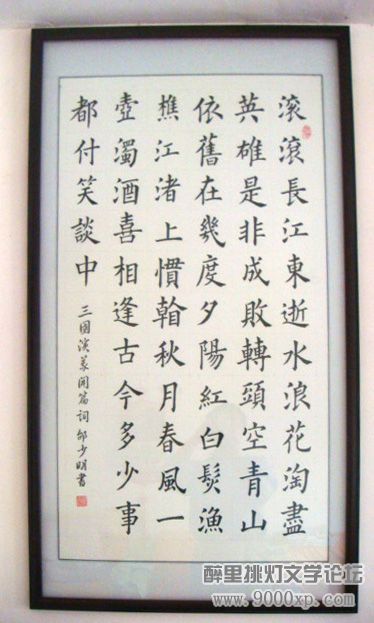 滾滾長江東逝水浪花淘盡
英雄是非成敗轉頭空青山
依舊在幾度夕陽紅白髮漁
樵江渚上慣翰秋月春風一
壺濁酒喜相逢古今多少事
都付笑談中
三國演義開篇詞 少明書
醉里挑灯文学论坛
www.9000xp.com